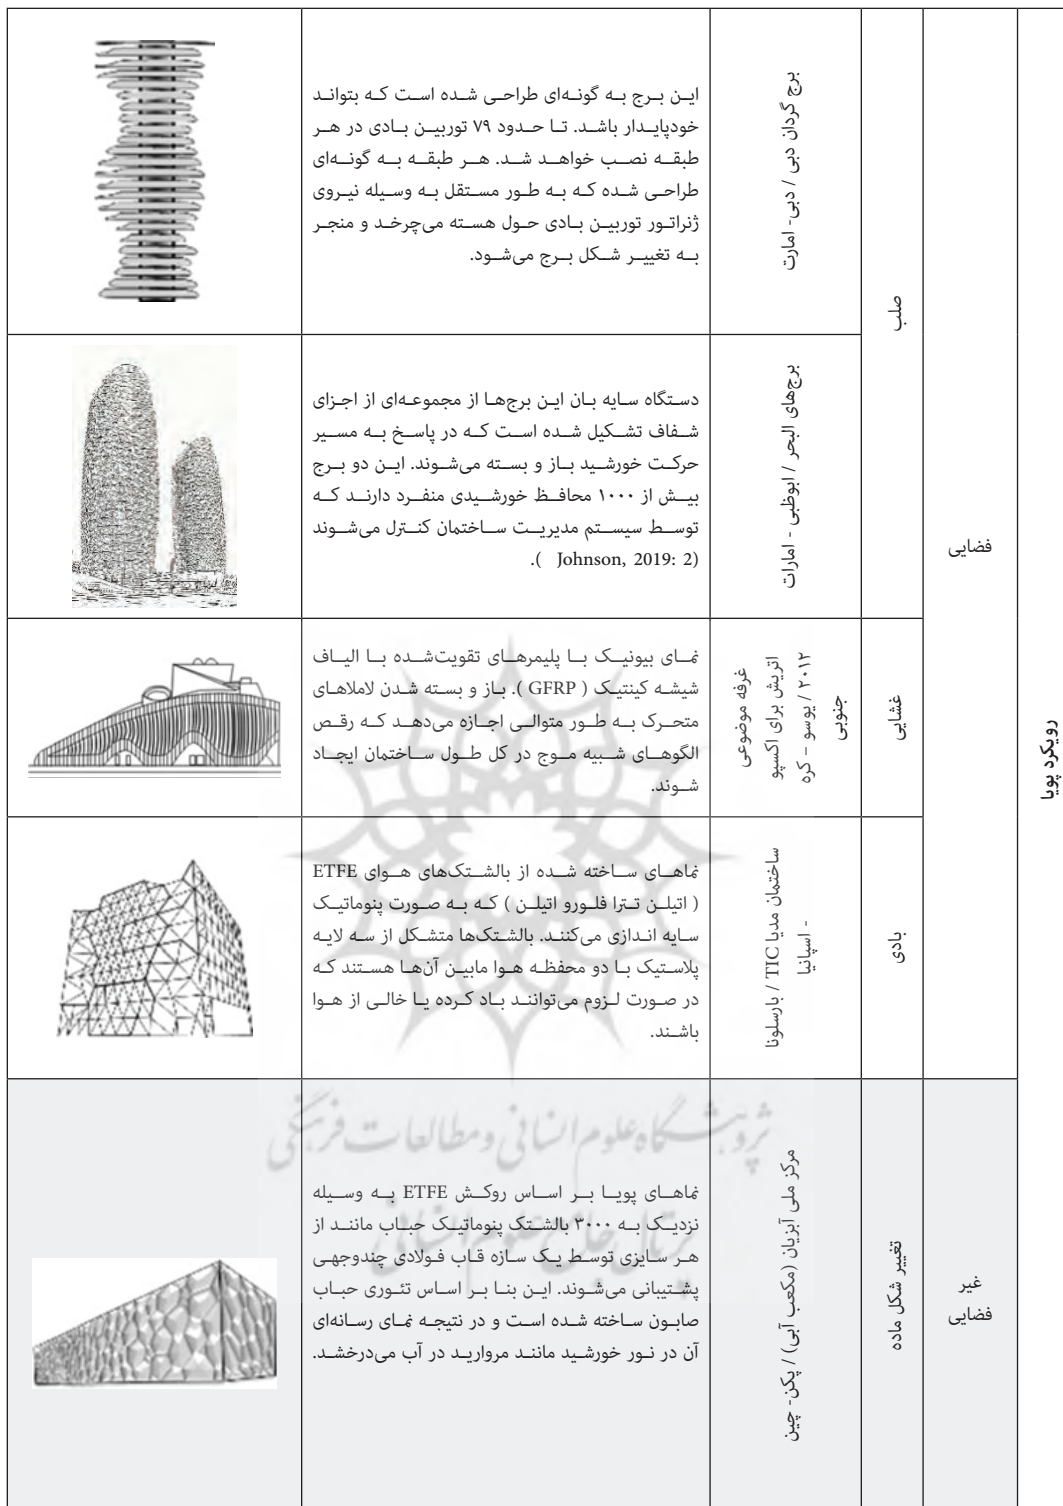 رویکرد پویا
فضایی
صلب
برج گردان دبی / دبی- امارت
این برج به گونه‌ای طراحی شده است که بتواند
خودپایدار باشد. تا حدود ۷۹ توربین بادی در هر
طبقه نصب خواهد شد. هر طبقه به گونه‌ای
طراحی شده که به طور مستقل به وسیله نیروی
ژنراتور توربین بادی حول هسته می‌چرخد و منجر
به تغییر شکل برج می‌شود.
برج‌های البحر / ابوظبی - امارات
دستگاه سایه بان این برج‌ها از مجموعه‌ای از اجزای
شفاف تشکیل شده است که در پاسخ به مسیر
حرکت خورشید باز و بسته می‌شوند. این دو برج
بیش از ۱۰۰۰ محافظ خورشیدی منفرد دارند که
توسط سیستم مدیریت ساختمان کنترل می‌شوند
(Johnson, 2019: 2 ).
غشایی
غرفه موضوعی
اتریش برای اکسپو
۲۰۱۲ / یوسو - کره
جنوبی
نمای بیونیک با پلیمرهای تقویت‌شده با الیاف
شیشه کینتیک ( GFRP ). باز و بسته شدن لاملاهای
متحرک به طور متوالی اجازه می‌دهد که رقص
الگوهای شبیه موج در کل طول ساختمان ایجاد
شوند.
بادی
ساختمان مدیا TIC / بارسلونا
- اسپانیا
نماهای ساخته شده از بالشتک‌های هوای ETFE
( اتیلن تترا فلورو اتیلن ) که به صورت پنوماتیک
سایه اندازی می‌کنند. بالشتک‌ها متشکل از سه لایه
پلاستیک با دو محفظه هوا مابین آن‌ها هستند که
در صورت لزوم می‌توانند باد کرده یا خالی از هوا
باشند.
غیر
فضایی
تغییر شکل ماده
مرکز ملی آبزیان (مکعب آبی) / پکن- چین
نماهای پویا بر اساس روکش ETFE به وسیله
نزدیک به ۳۰۰۰ بالشتک پنوماتیک حباب مانند از
هر سایزی توسط یک سازه قاب فولادی چندوجهی
پشتیبانی می‌شوند. این بنا بر اساس تئوری حباب
صابون ساخته شده است و در نتیجه نمای رسانه‌ای
آن در نور خورشید مانند مروارید در آب می‌درخشد.
پژوهشگاه علوم انسانی و مطالعات فرهنگی
پرتال جامع علوم انسانی